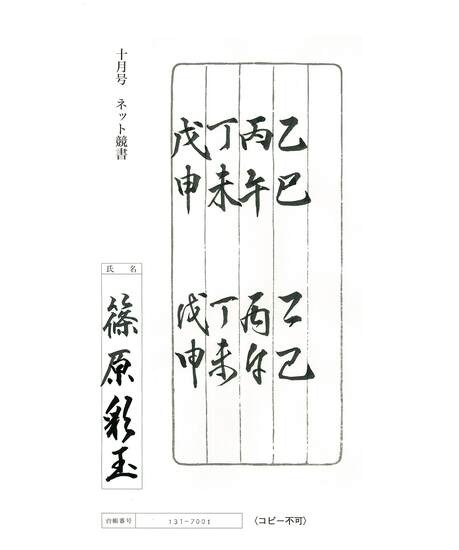 十月号 ネット競書
乙巳 乙巳
丙午 丙午
丁未 丁未
戊申 戊申
氏名
篠原彩玉
台帳番号 131-7001 (コピー不可)